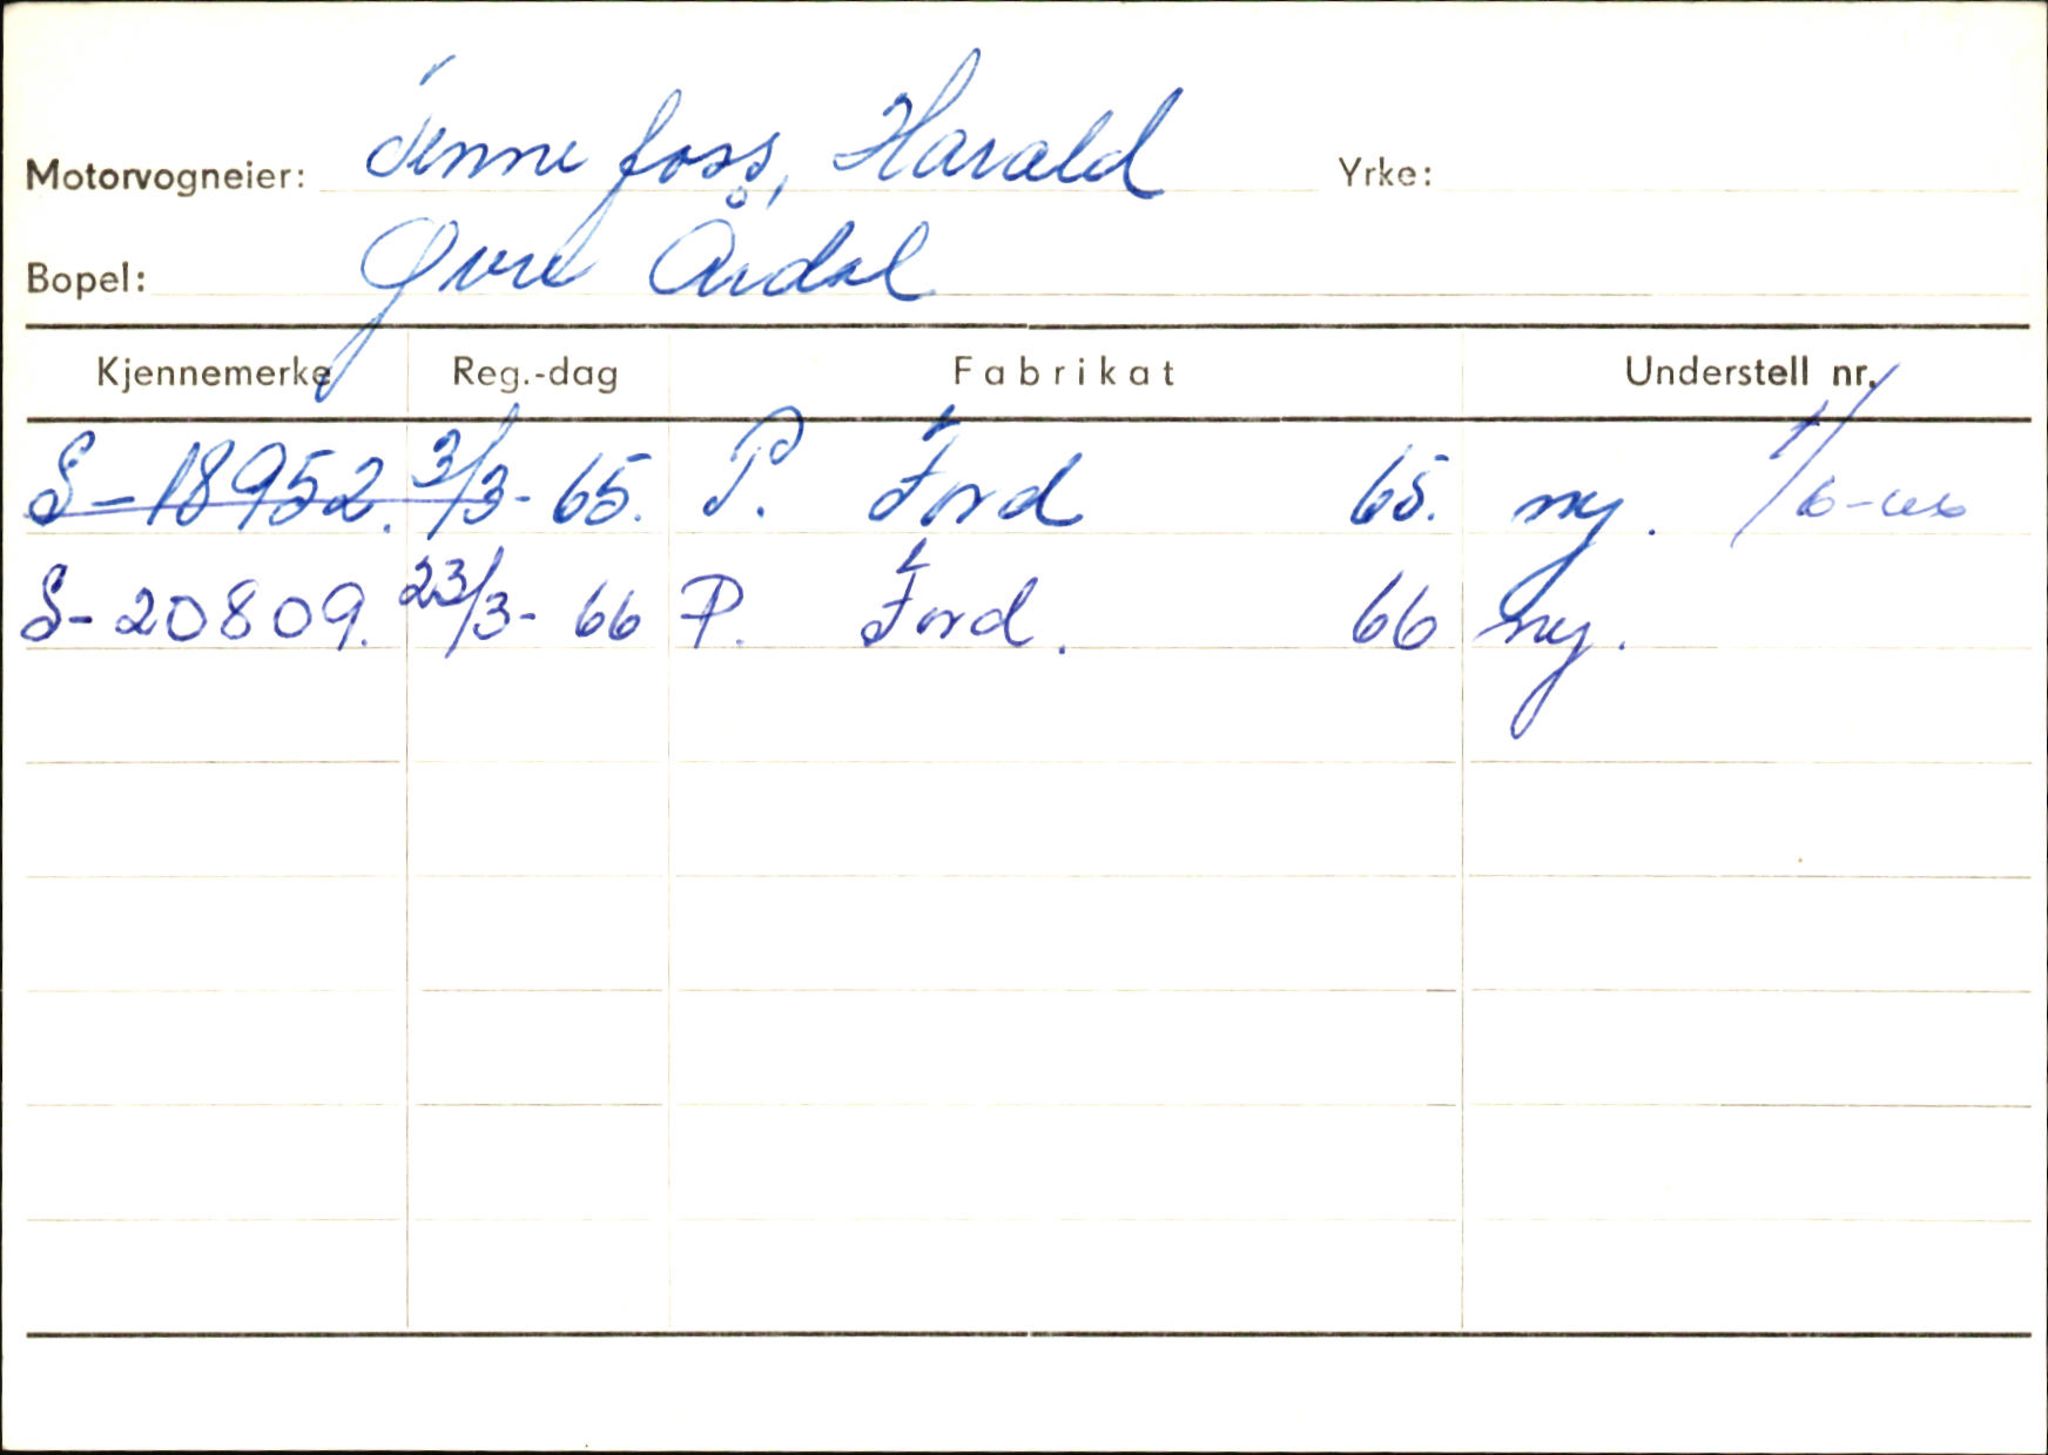 Motorvogneier: Tennefoss, Harald Yrke:
Bopel: Øvre Årdal
Kjennemerke Reg.-dag Fabrikat Understell nr.
S-18952. 3/3-65. P. Ford 65. ny.
S-20809. 23/3-66 P. Ford. 66 ny.